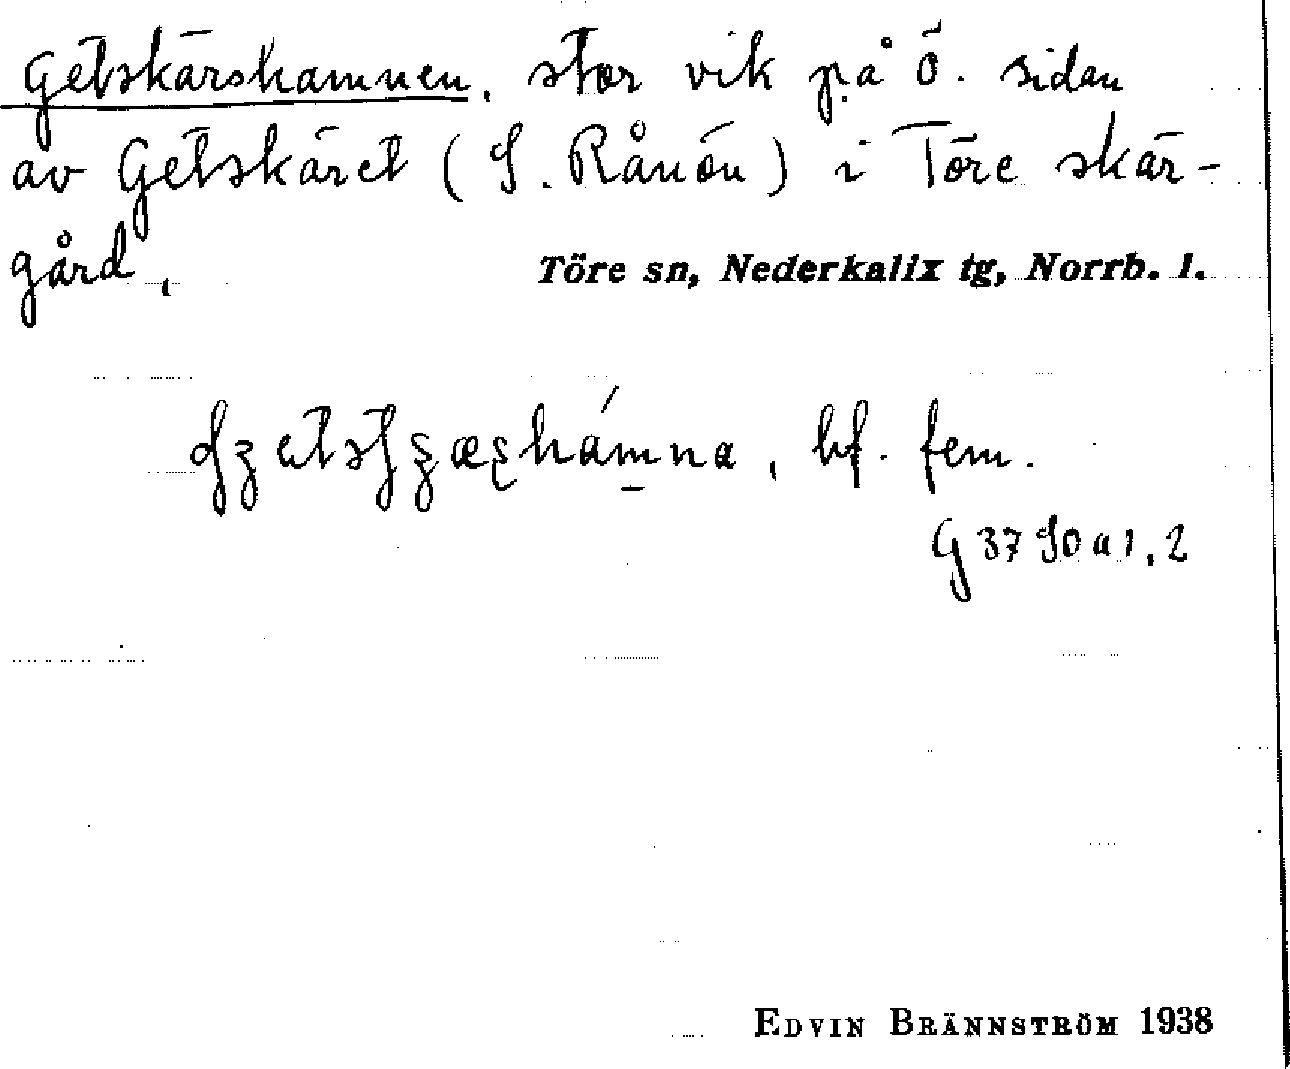 Getskärshamnen, stor vik på ö. sidan
av Getskäret (S. Rånön) i Töre skär-
gård,
Töre sn, Nederkalix tg, Norrb. l.
hámna, bf. fem.
G 37 S0 a 1, 2
EDVIN BRÄNNSTRÖM 1938